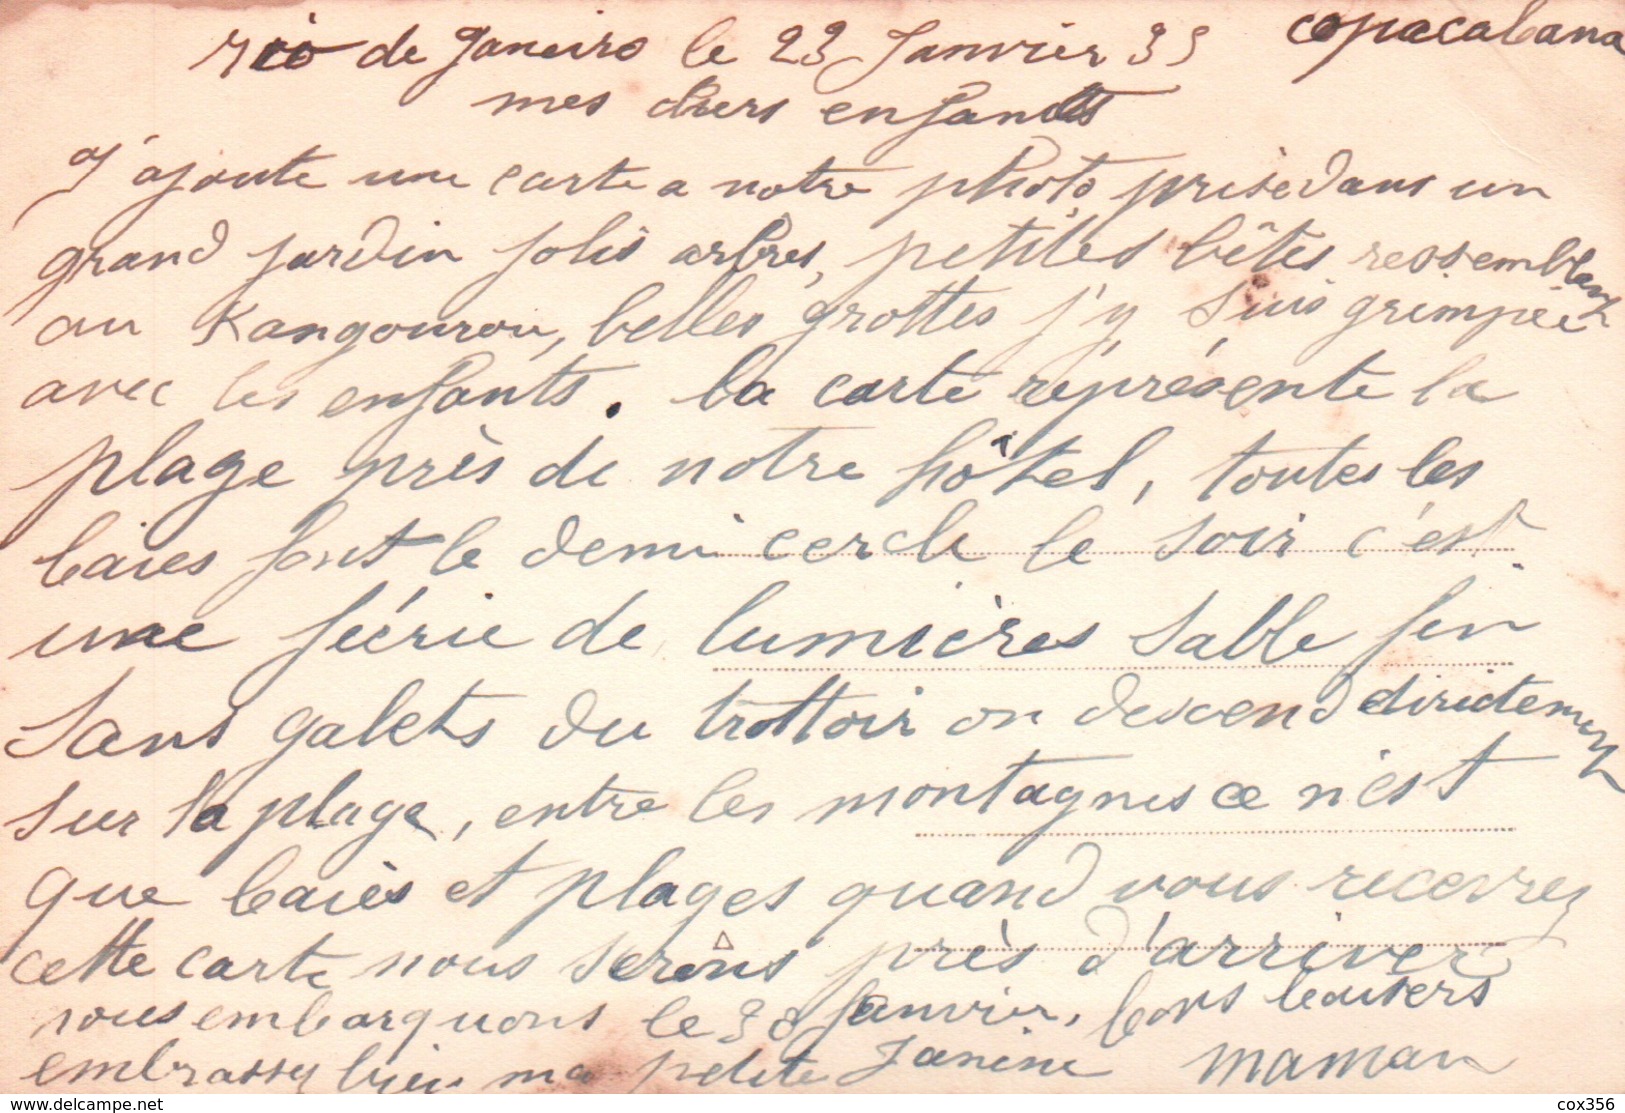 rio de Janeiro le 23 Janvier 35 copacabana
mes chers enfants
J'ajoute une carte a notre photo prise dans un
grand jardin jolis arbres, petites bêtes ressemblant
au Kangourou, belles grottes j'y suis grimpée
avec les enfants. la carte représente la
plage près de notre hôtel, toutes les
baies font le demi cercle le soir c'est
une féérie de lumières sable fin
sans galets du trottoir on descend directement
sur la plage, entre les montagnes ce n'est
que baies et plages quand vous recevrez
cette carte nous serons près d'arriver
nous embarquons le 30 Janvier, bons baisers
embrassez bien ma petite Janine maman
delcampe.net
cox356